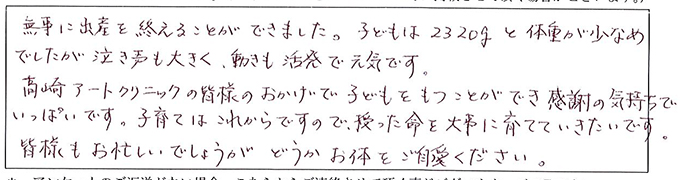 無事に出産を終えることができました。子どもは2320gと体重が少なめ
でしたが泣き声も大きく、動きも活発で元気です。
高崎アートクリニックの皆様のおかげで子どもをもつことができ感謝の気持ちで
いっぱいです。子育てはこれからですので、授った命を大事に育てていきたいです。
皆様もお忙しいでしょうがどうかお体をご自愛ください。